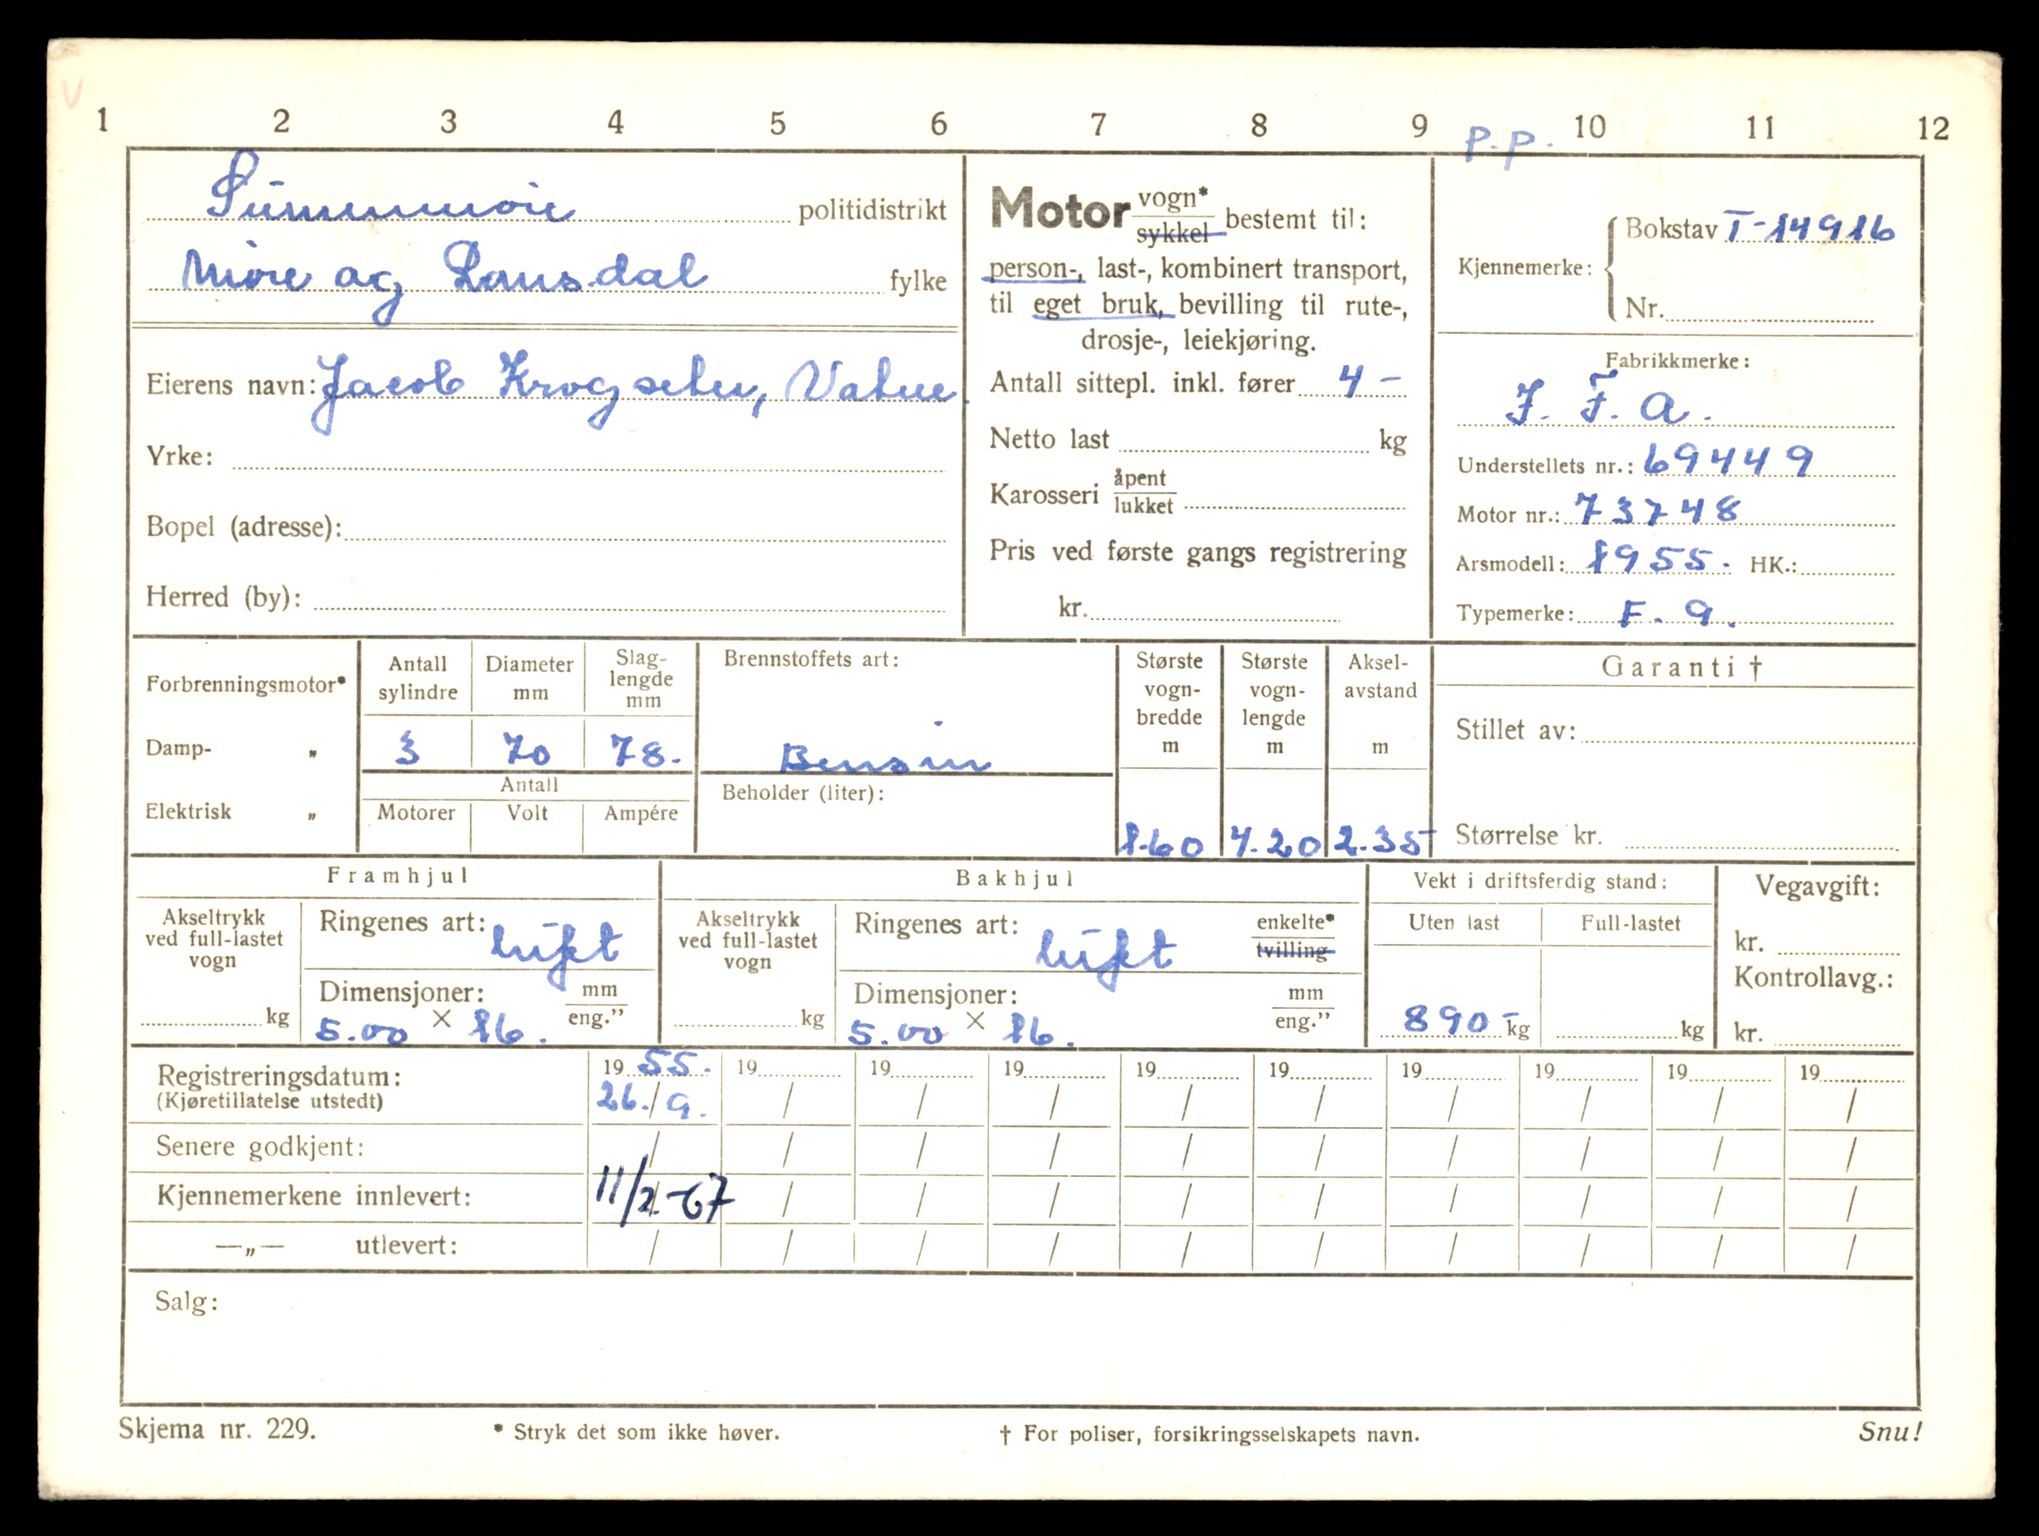 1 2 3 4 5 6 7 8 9 10 11 12
P.P.
Sunnmøre politidistrikt
Møre og Romsdal fylke
Eierens navn: Jacob Krogsæter, Vatne.
Yrke:
Bopel (adresse):
Herred (by):
Motor vogn* sykkel bestemt til:
person-, last-, kombinert transport,
til eget bruk, bevilling til rute-,
drosje-, leiekjøring.
Antall sittepl. inkl. fører 4 -
Netto last kg
Karosseri åpent lukket
Pris ved første gangs registrering
kr.
Kjennemerke: Bokstav T-14916
Nr.
Fabrikkmerke:
I. F. A.
Understellets nr.: 69449
Motor nr.: 73748
Arsmodell: 1955. HK.:
Typemerke: F. 9.
Forbrenningsmotor*
Damp- „
Elektrisk „
Antall sylindre
3
Diameter mm
70
Slag-lengde mm
78.
Antall
Motorer Volt Ampére
Brennstoffets art:
Bensin
Beholder (liter):
Største vogn-bredde m
1.60
Største vogn-lengde m
4.20
Aksel-avstand m
2.35
Garanti †
Stillet av:
Størrelse kr.
Framhjul
Akseltrykk ved full-lastet vogn
kg
Ringenes art: luft
Dimensjoner: mm eng.”
5.00 × 16.
Bakhjul
Akseltrykk ved full-lastet vogn
kg
Ringenes art: luft enkelte* tvilling
Dimensjoner: mm eng.”
5.00 × 16.
Vekt i driftsferdig stand:
Uten last Full-lastet
890 - kg kg
Vegavgift:
kr.
Kontrollavg.:
kr.
Registreringsdatum: 19 55. 19 19 19 19 19 19 19 19 19
(Kjøretillatelse utstedt) 26./9. / / / / / / / / /
Senere godkjent: / / / / / / / / / /
Kjennemerkene innlevert: 11/2-67 / / / / / / / / /
—„— utlevert: / / / / / / / / / /
Salg:
Skjema nr. 229. * Stryk det som ikke høver. † For poliser, forsikringsselskapets navn. Snu!